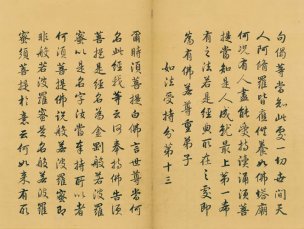 句偈等當知此處一切世間天
人阿脩羅皆應供養如佛塔廟
何況有人盡能受持讀誦須菩
提當知是人成就最上第一希
有之法若是經典所在之處即
為有佛若尊重弟子
如法受持分第十三
爾時須菩提白佛言世尊當何
名此經我等云何奉持佛告須
菩提是經名為金剛般若波羅
蜜以是名字汝當奉持所以者
何須菩提佛說般若波羅蜜即
非般若波羅蜜是名般若波羅
蜜須菩提於意云何如來有所